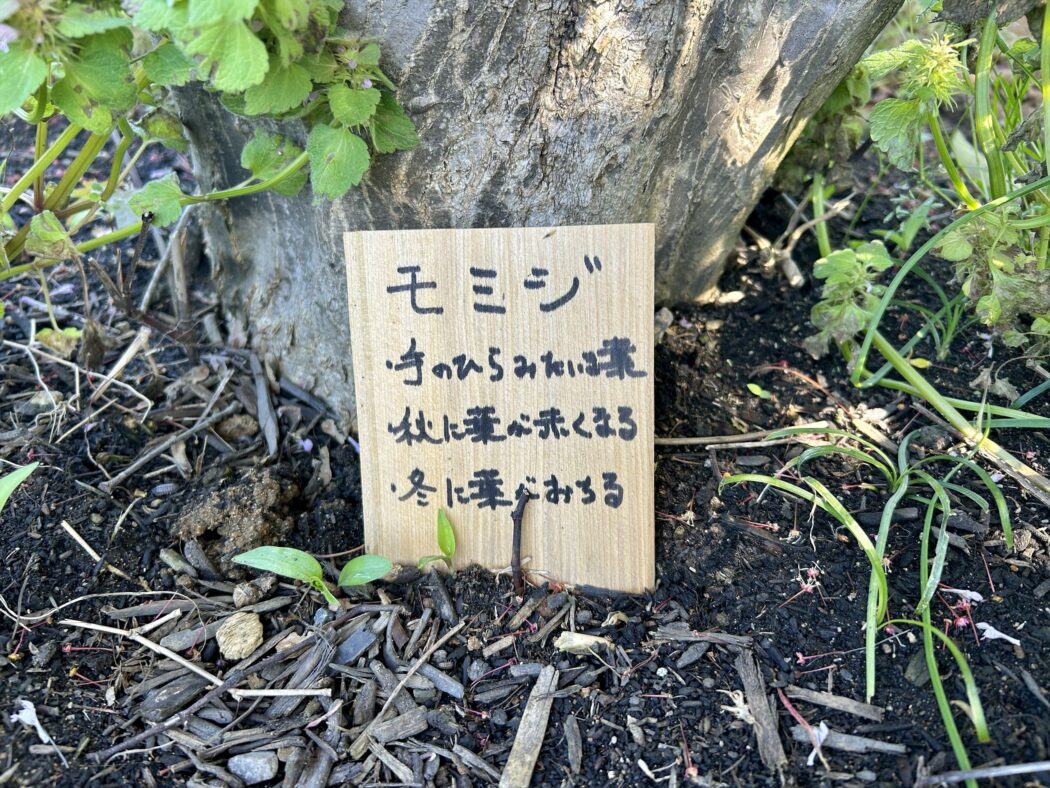 モミジ
・手のひらみたいな葉
・秋に葉が赤くなる
・冬に葉がおちる